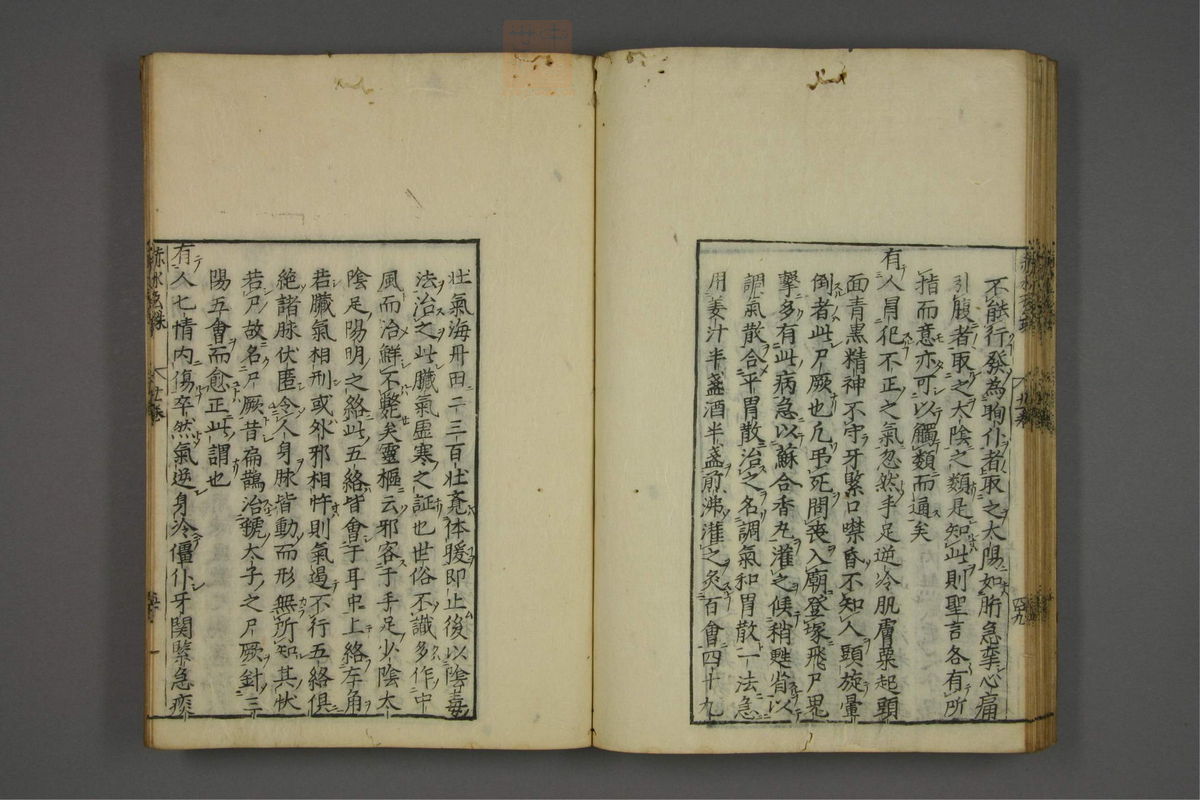 不能行發為眴仆者取之太陽如胻急攣心痛
引腹者取之大陰之類是知此則聖言各有所
指而意亦可以觸類而通矣
有人冐犯不正之氣忽然手足逆冷肌膚粟起頭
面青黒精神不守牙緊口噤昏不知人頭旋暈
倒者此尸厥也凢弔死問喪入廟登塚飛尸鬼
擊多有此病急以蘇合香丸灌之候稍甦省以
調氣散合平胃散治之名調氣和胃散一法急
用姜汁半盞酒半盞煎沸灌之灸百會四十九
壮氣海丹田二三百壮竟体暖即止後以陰毒
法治之此臟氣虚寒之証也世俗不識多作中
風而治鮮不斃矣靈樞云邪客于手足少陰太
陰足陽明之絡此五絡皆會于耳中上絡左角
若臟氣相刑或外邪相忤則氣遏不行五絡俱
絶諸脉伏匿令人身脉皆動而形無所知其状
若尸故名尸厥昔扁鵲治虢太子之尸厥針三
陽五會而愈正此謂也
有人七情内傷卒然氣逆身冷僵仆牙関緊急痰
赤水玄珠